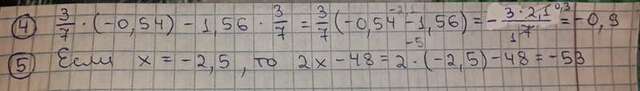 ④ 3/7 · (-0,54) - 1,56 · 3/7 = 3/7 (-0,54 - 1,56) = - 3 · 2,1 0,3 / 1 7 = -0,9
⑤ Если x = -2,5, то 2x - 48 = 2 · (-2,5) - 48 = -53
-5